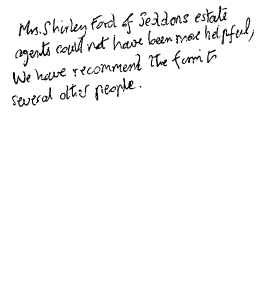 Mrs. Shirley Ford of Seddons estate
agents could not have been more helpful,
We have recommend the firm to
several other people.